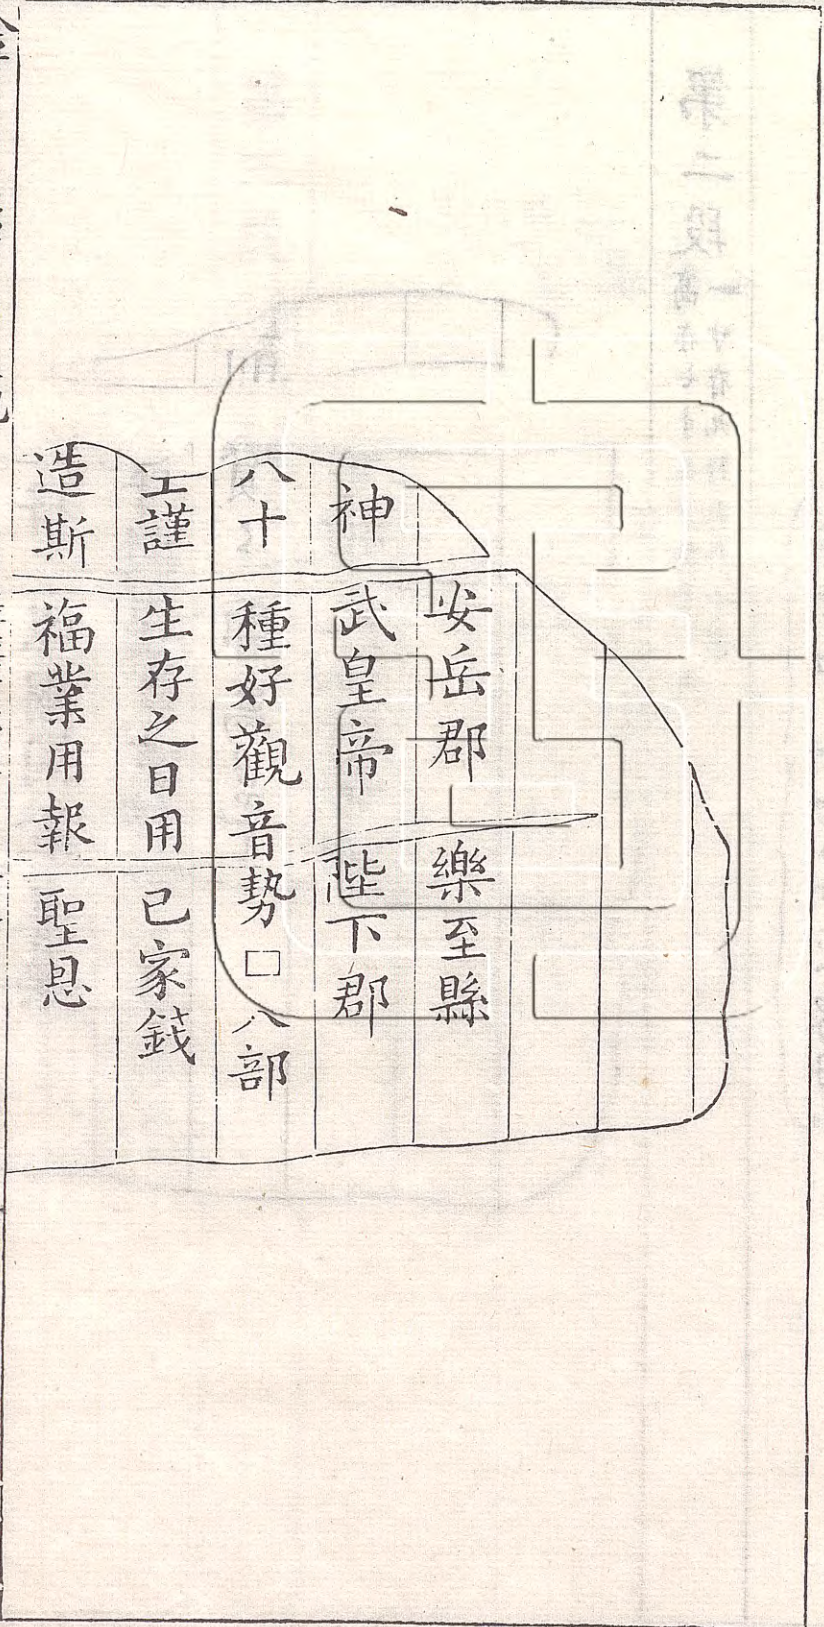 安岳郡樂至縣
神武皇帝陛下郡
八十種好觀音勢□八部
工謹生存之日用已家錢
造斯福業用報聖恩